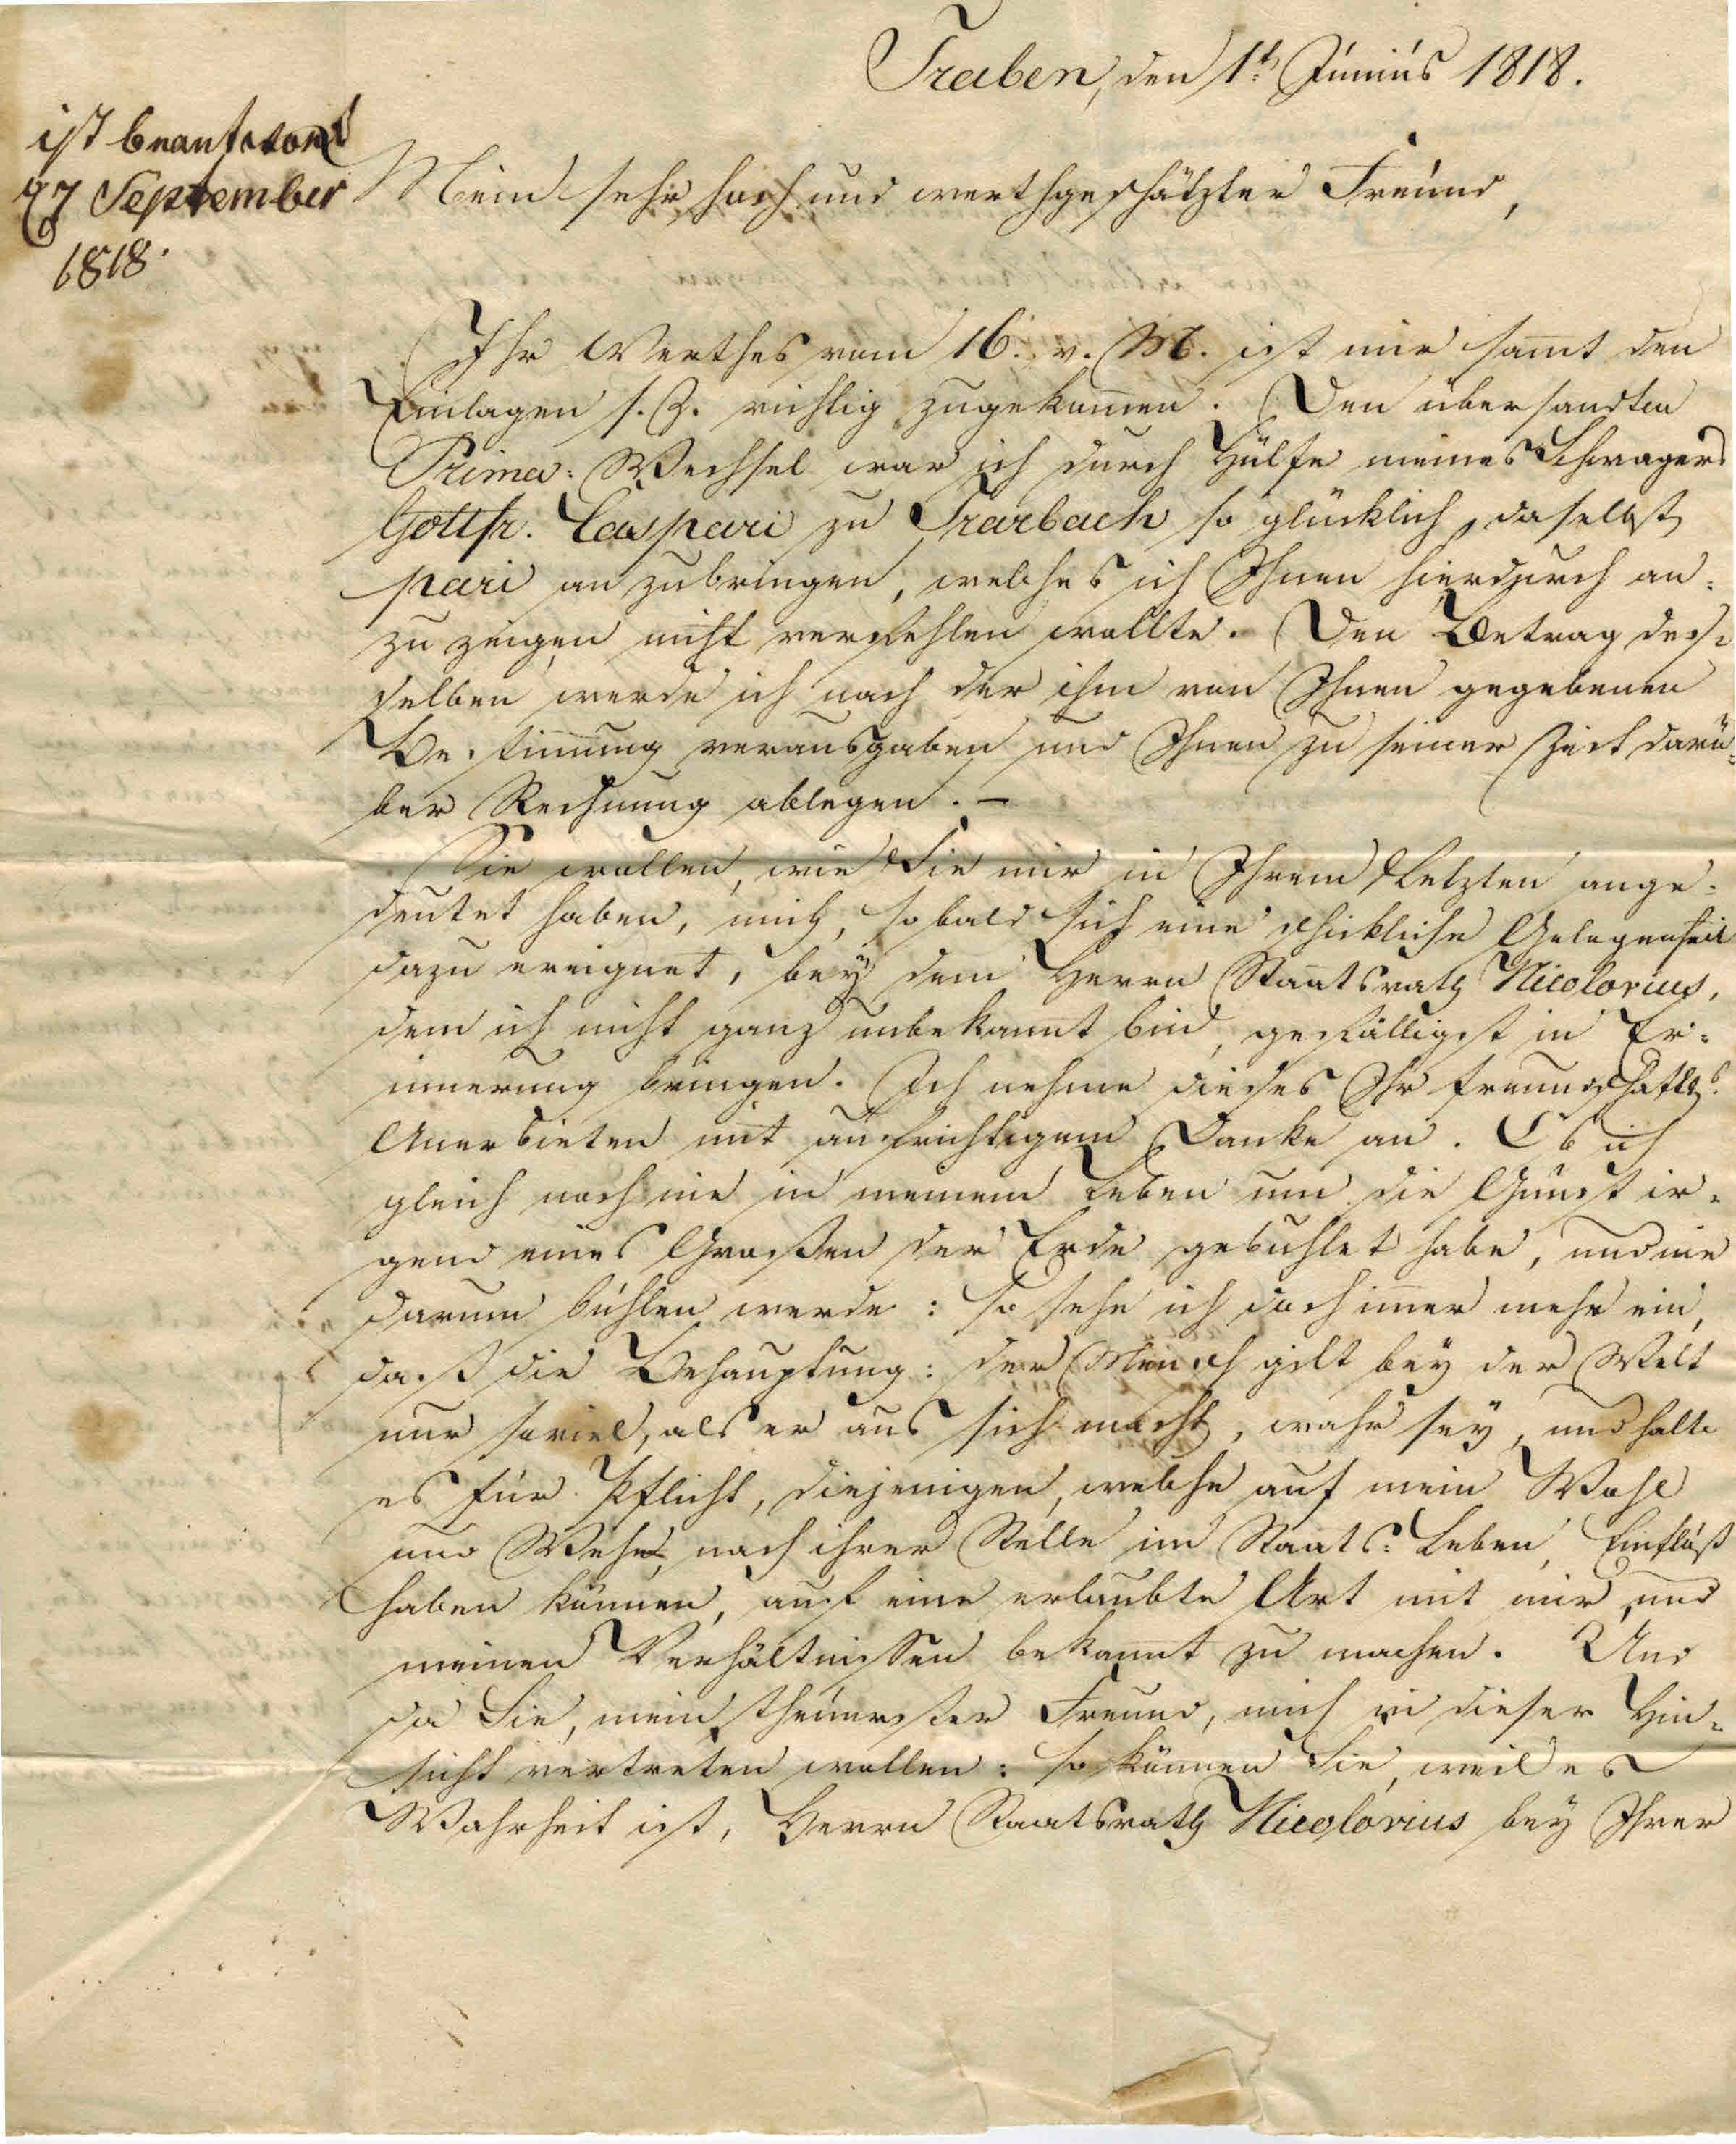 Traben, den 1t Junius 1818.
ist beantwort
27 September
1818.
Mein sehr hoch und werthgeschätzter Freund,
Ihr Werthes vom 16. v. M. ist mir samt den
Einlagen s. Z. richtig zugekomen. Den übersandten
Prima-Wechsel war ich durch Hülfe meines Schwagers
Gottfr. Caspari zu Trarbach so glücklich, daselbst
pari anzubringen, welches ich Ihnen hierdurch an-
zuzeigen nicht verfehlen wollte. Den Betrag des-
selben werde ich nach der ihm von Ihnen gegebenen
Bestimung verausgaben und Ihnen zu seiner Zeit darü-
ber Rechnung ablegen. –
Sie wollen, wie Sie mir in Ihrem Letzten ange-
deutet haben, mich, sobald sich eine schickliche Gelegenheit
dazu ereignet, bey dem Herrn Staatsrath Nicolovius,
dem ich nicht ganz unbekannt bin, gefälligst in Er-
innerung bringen. Ich nehme dieses Ihr freundschaftl.
Anerbieten mit aufrichtigem Danke an. Ob ich
gleich noch nie in meinem Leben um die Gunst ir-
gend eines Großen der Erde gebuhlet habe, und nie
darum buhlen werde: so sehe ich doch imer mehr ein,
daß die Behauptung: der Mensch gilt bey der Welt
nur soviel, als er aus sich macht, wahr sey, und halte
es für Pflicht, diejenigen, welche auf mein Wohl
und Wehe, nach ihrer Stelle im Staats-Leben, Einfluß
haben können, auf eine erlaubte Art mit mir und
meinen Verhältnissen bekannt zu machen. Und
da Sie, mein theuerster Freund, mich in dieser Hin-
sicht vertreten wollen: so können Sie, weil es
Wahrheit ist, Herrn Staatsrath Nicolovius bey Ihrer